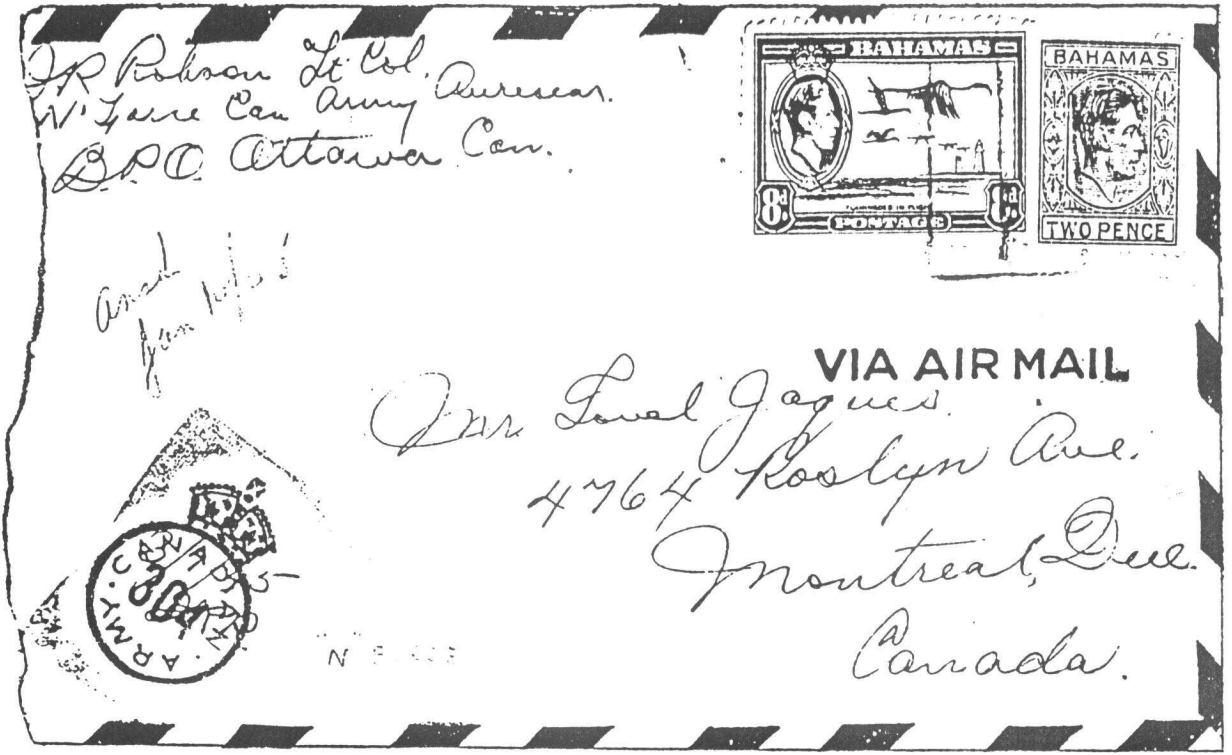 FR Robson Lt Col.
N' Force Can Army Overseas.
B.P.O. Ottawa Can.
BAHAMAS
8d
8d
POSTAGE
BAHAMAS
TWO PENCE
Jan
VIA AIR MAIL
Mr. Loval Jaques.
4764 Roslyn Ave.
Montreal, Que.
Canada.
ARMY · CANADA
N